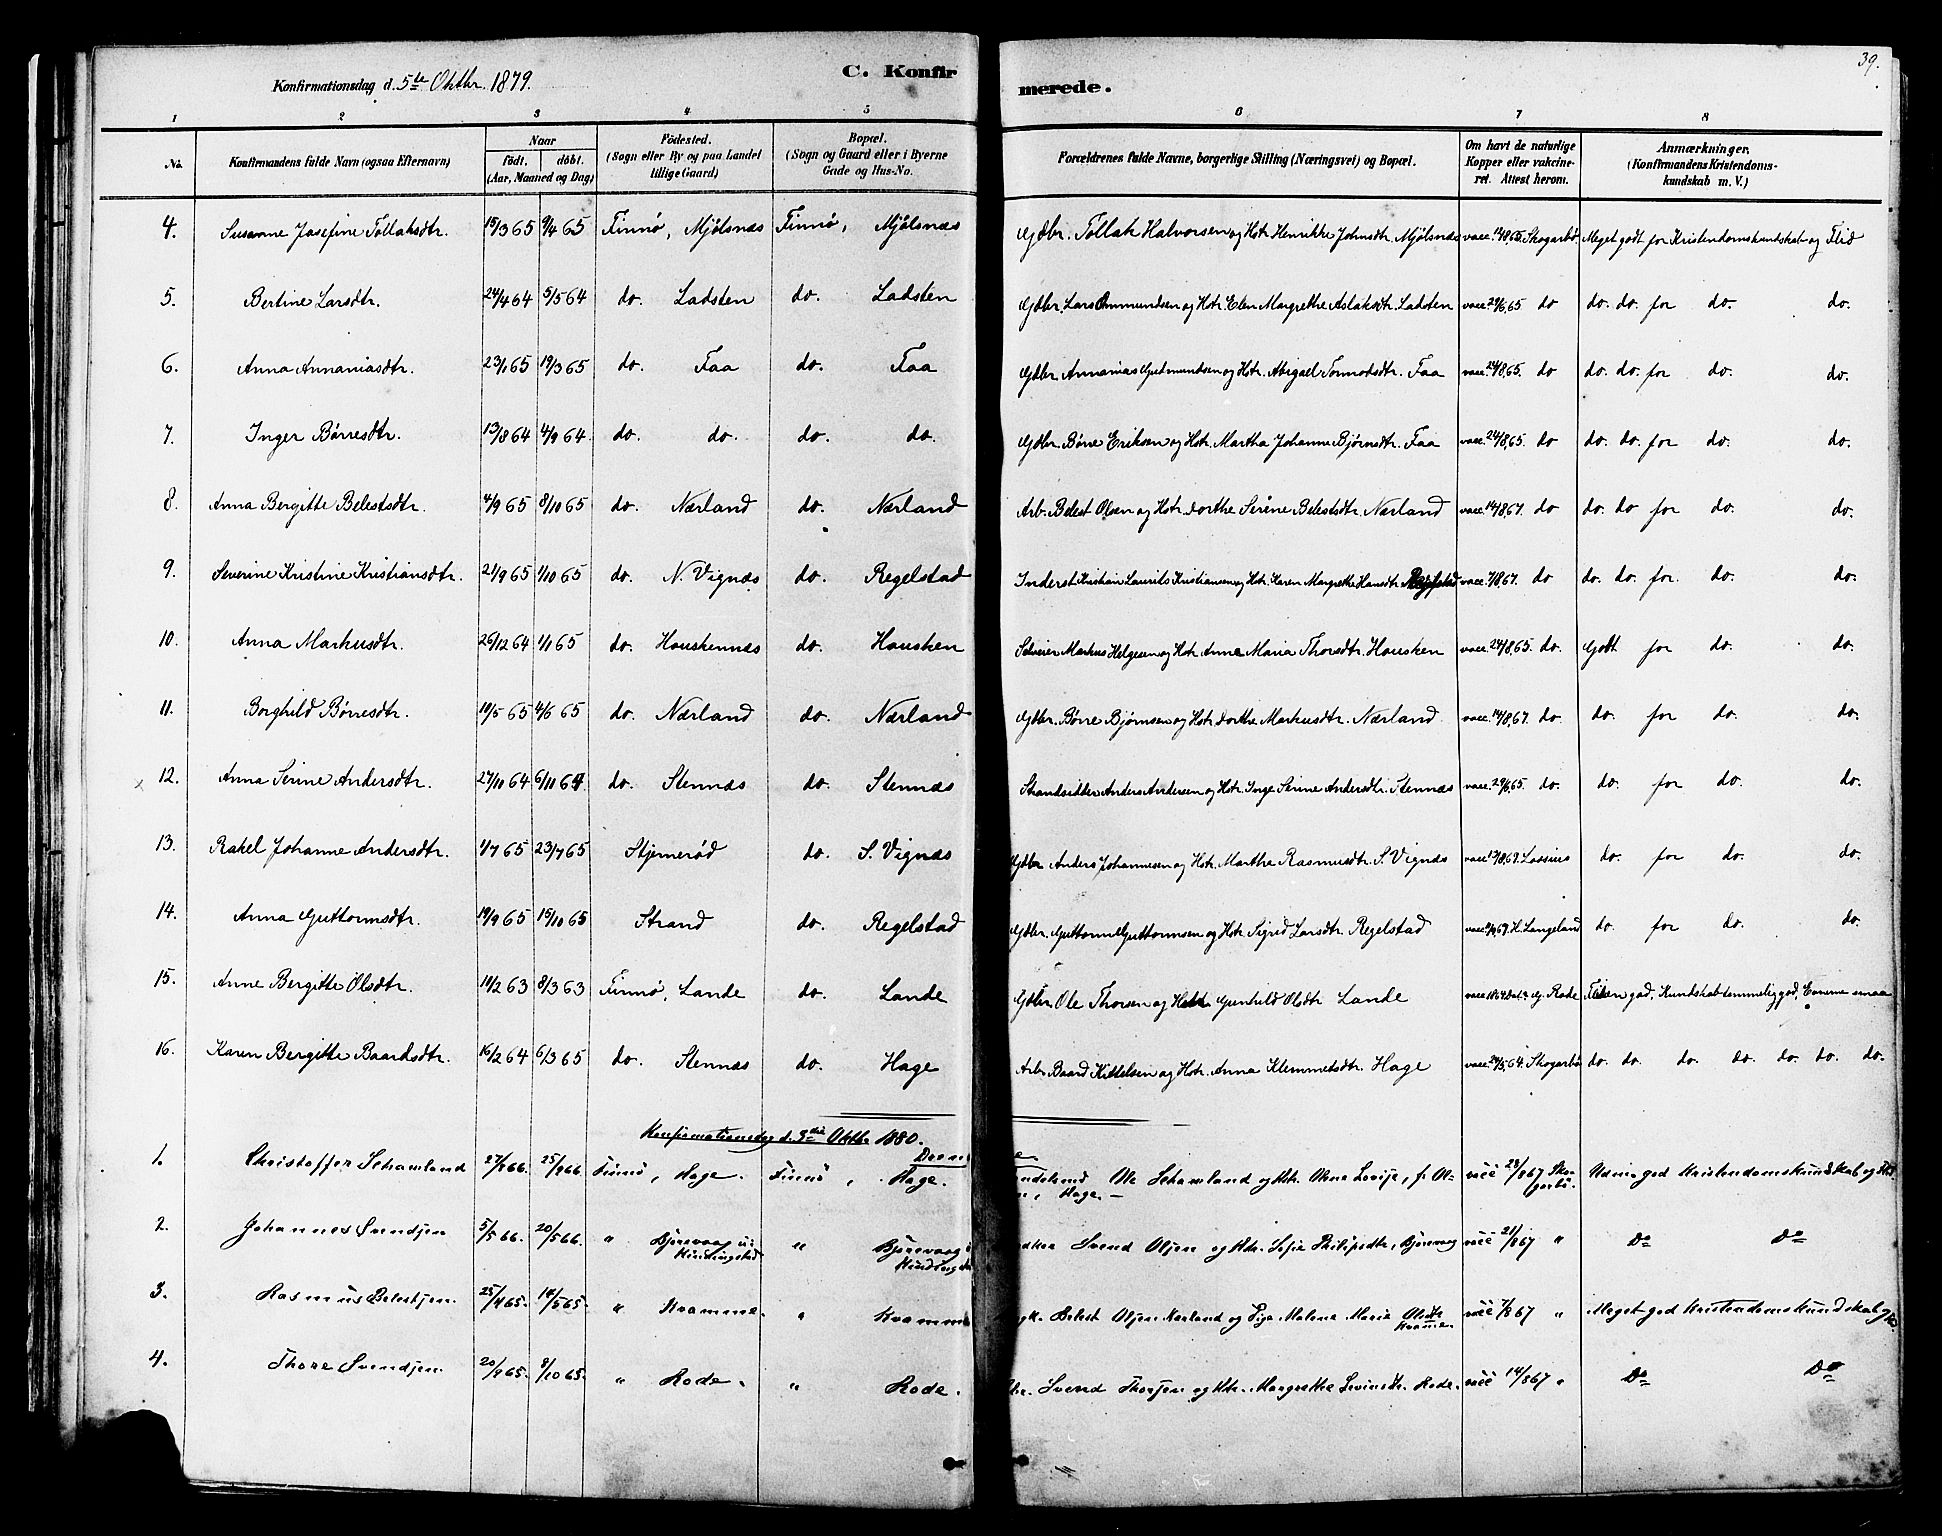 39.
Konfirmationsdag d. 5te Oktbr. 1879. C. Konfirmerede.
1 2 3 4 5 6 7 8
No. Konfirmandens fulde Navn (ogsaa Efternavn) Naar födt. döbt. (Aar, Maaned og Dag) Födested. (Sogn eller By og paa Landet tillige Gaard) Bopæl. (Sogn og Gaard eller i Byerne Gade og Hus-No. Forældrenes fulde Navne, borgerlige Stilling (Næringsvei) og Bopæl. Om havt de naturlige Kopper eller vakcineret. Attest herom. Anmærkninger. (Konfirmandens Kristendomskundskab m. V.)
4. Susanne Josefine Tollaksdtr. 15/3 65 9/4 65 Finnø, Mjølsnæs Finnø, Mjølsnæs Gdbr. Tollak Halvorsen og Hstr. Henrikke Johnsdtr. Mjølsnæs vacc. Skogarbø. Meget godt for Kristendomskundskab og Flid
5. Bertine Larsdtr. 24/4 64 5/5 64 do. Ladsten do. Ladsten Gdbr. Lars Ommundsen og Hstr. Elen Margrethe Aslaksdtr. Ladsten vacc. 29/6,65 do do. do. for do. do.
6. Anna Annaniasdtr. 23/1 65 19/3 65 do. Faa do. Faa Gdbr. Annanias Gudmundsen og Hstr. Abigael Tormodsdtr. Faa vacc. 24/8,65. do do. do. for do. do.
7. Inger Børresdtr. 13/8 64 4/9 64. do. do. do. do. Gdbr. Børre Eriksen og Hstr. Martha Johanne Bjørnsdtr. Faa vacc. 24/8,65. do do. do. for do. do.
8. Anna Bergitte Belestsdtr. 4/9 65 8/10 65 do. Nærland do. Nærland Arb. Belest Olsen og Hstr. Dorthe Serine Belestsdtr. Nærland vacc. 14/8,67. do do. do for do. do.
9. Severine Kristine Kristiansdtr. 21/9 65 1/10 65 do. N. Vignæs do. Regelstad Inderst Kristian Laurits Kristiansen og Hstr. Karen Margrethe Hansdtr. vacc. 7/8 67. do do. do. for. do. do.
10. Anna Markusdtr. 26/12 64 1/1 65 do. Houskennæs do. Housken Selveier Markus Helgesen og Hstr. Anne Maria Thorsdtr. Housken vacc. 24/8,65. do. Godt for do. do.
11. Borghild Børresdtr. 10/5 65 4/6 65 do. Nærland do. Nærland Gdbr. Børre Bjørnsen og Hstr. Dorthe Markusdtr. Nærland. vacc. 14/8,67. do. do. for do. do.
12. Anna Serine Andersdtr. 27/10 64 6/11 64 do. Stennæs do. Stennæs Strandsidder Anders Andersen og Hstr. Inge Serine Andersdtr. Stennæs vacc. 29/6,65. do. do. for do. do.
13. Rakel Johanne Andersdtr. 1/7 65 23/7 65 Stjernerød do. S. Vignæs Gdbr Anders Johannesen og Hstr. Marthe Rasmusdtr. S. Vignæs vacc. Lossius do. for do. do.
14. Anna Guttormsdtr. 19/9 65 15/10 65 Strand do. Regelstad Gdbr. Guttorm Guttormsen og Hstr. Sigrid Larsdtr. Regelstad vacc. H. Langeland do. for do. do.
15. Anne Bergitte Olsdtr. 11/2 63 8/3 63 Finnø, Lande do. Lande Gdbr. Ole Thorsen og Hstr Gunhild Olsdtr Lande vacc. G. Rode Fliden god, Kundskab temmelig god, Evnerne smaa
16. Karen Bergitte Baardsdtr. 16/2 64 6/3 65 do. Stennæs do. Hage Arb. Baard Kittelsen og Hstr. Anna Klemmetsdtr. Hage vacc. 24/5,64. Skogarbø do. do. do. do. do. do. do.
Konfirmationsdag d. 3die Oktbr. 1880.
1. Christoffer Schamland 27/ 66. 25/ 66. Finnø, Hage. Finnø, Hage. Ole Schamland og Hstr. Olene Lovise, f. Hage. vacc 28/8 67 Skogarbø. Udm. god Kristendomskundskab og Flid
2. Johannes Svendsen 5/5 66. 20/5 66. " Bjørevaag u: " Bjørevaag Svend Olsen og Hstr. Sofie Philipsdtr., Bjørevaag vacc 21/8 67 " Do Do
3. Rasmus Belestsen. 25/4 65. 14/5 65. " Kvamme. " Kvamme Belest Olsen Nærland og Pige Malene Marie Olsdtr Kvamme. vacc 7/8 67 " Meget god Kristendomskundskab og
4. Thore Svendsen. 20/9 65. 8/10 65. " Rode. " Rode. Svend Thorsen og Hstr. Margrethe Rode. vacc 14/8 67 " Do Do